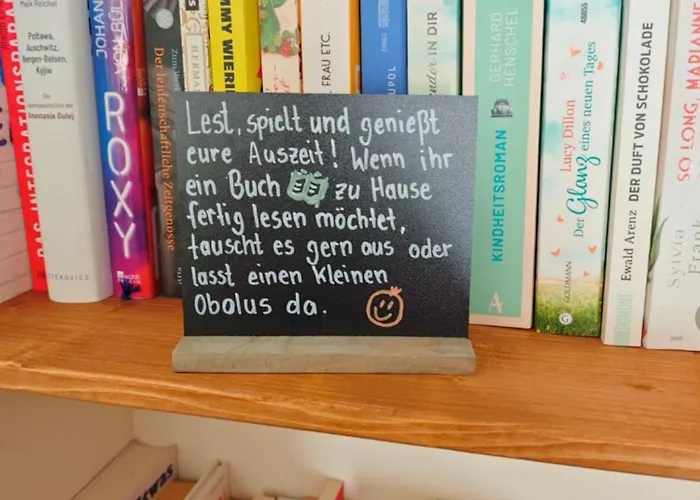 Maik Reichel
Poltawa,
Auschwitz,
Bergen-Belsen,
Kyjiw
Die Lebensgeschichte der
Anastasia Gulej
DAS INTEGRATIONSPARA
JOHAN
VON BÜL
ROXY
rowohlt
Der leidenschaftliche Zeitgenosse
HERMA
MY WIERI
FRAU ETC.
IN DIR
GERHARD
HENSCHEL
KINDHEITSROMAN
A
Lucy Dillon
Der Glanz eines neuen Tages
GOLDMANN
Ewald Arenz DER DUFT VON SCHOKOLADE
SO LONG, MARIANNE
Sylvia
Frank
Lest, spielt und genießt
eure Auszeit! Wenn ihr
ein Buch zu Hause
fertig lesen möchtet,
tauscht es gern aus oder
lasst einen kleinen
Obolus da.